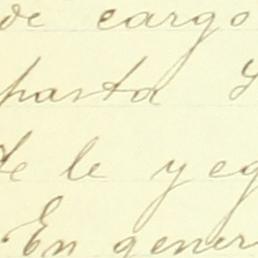 de cargo
pasta
te le y eg
En gener